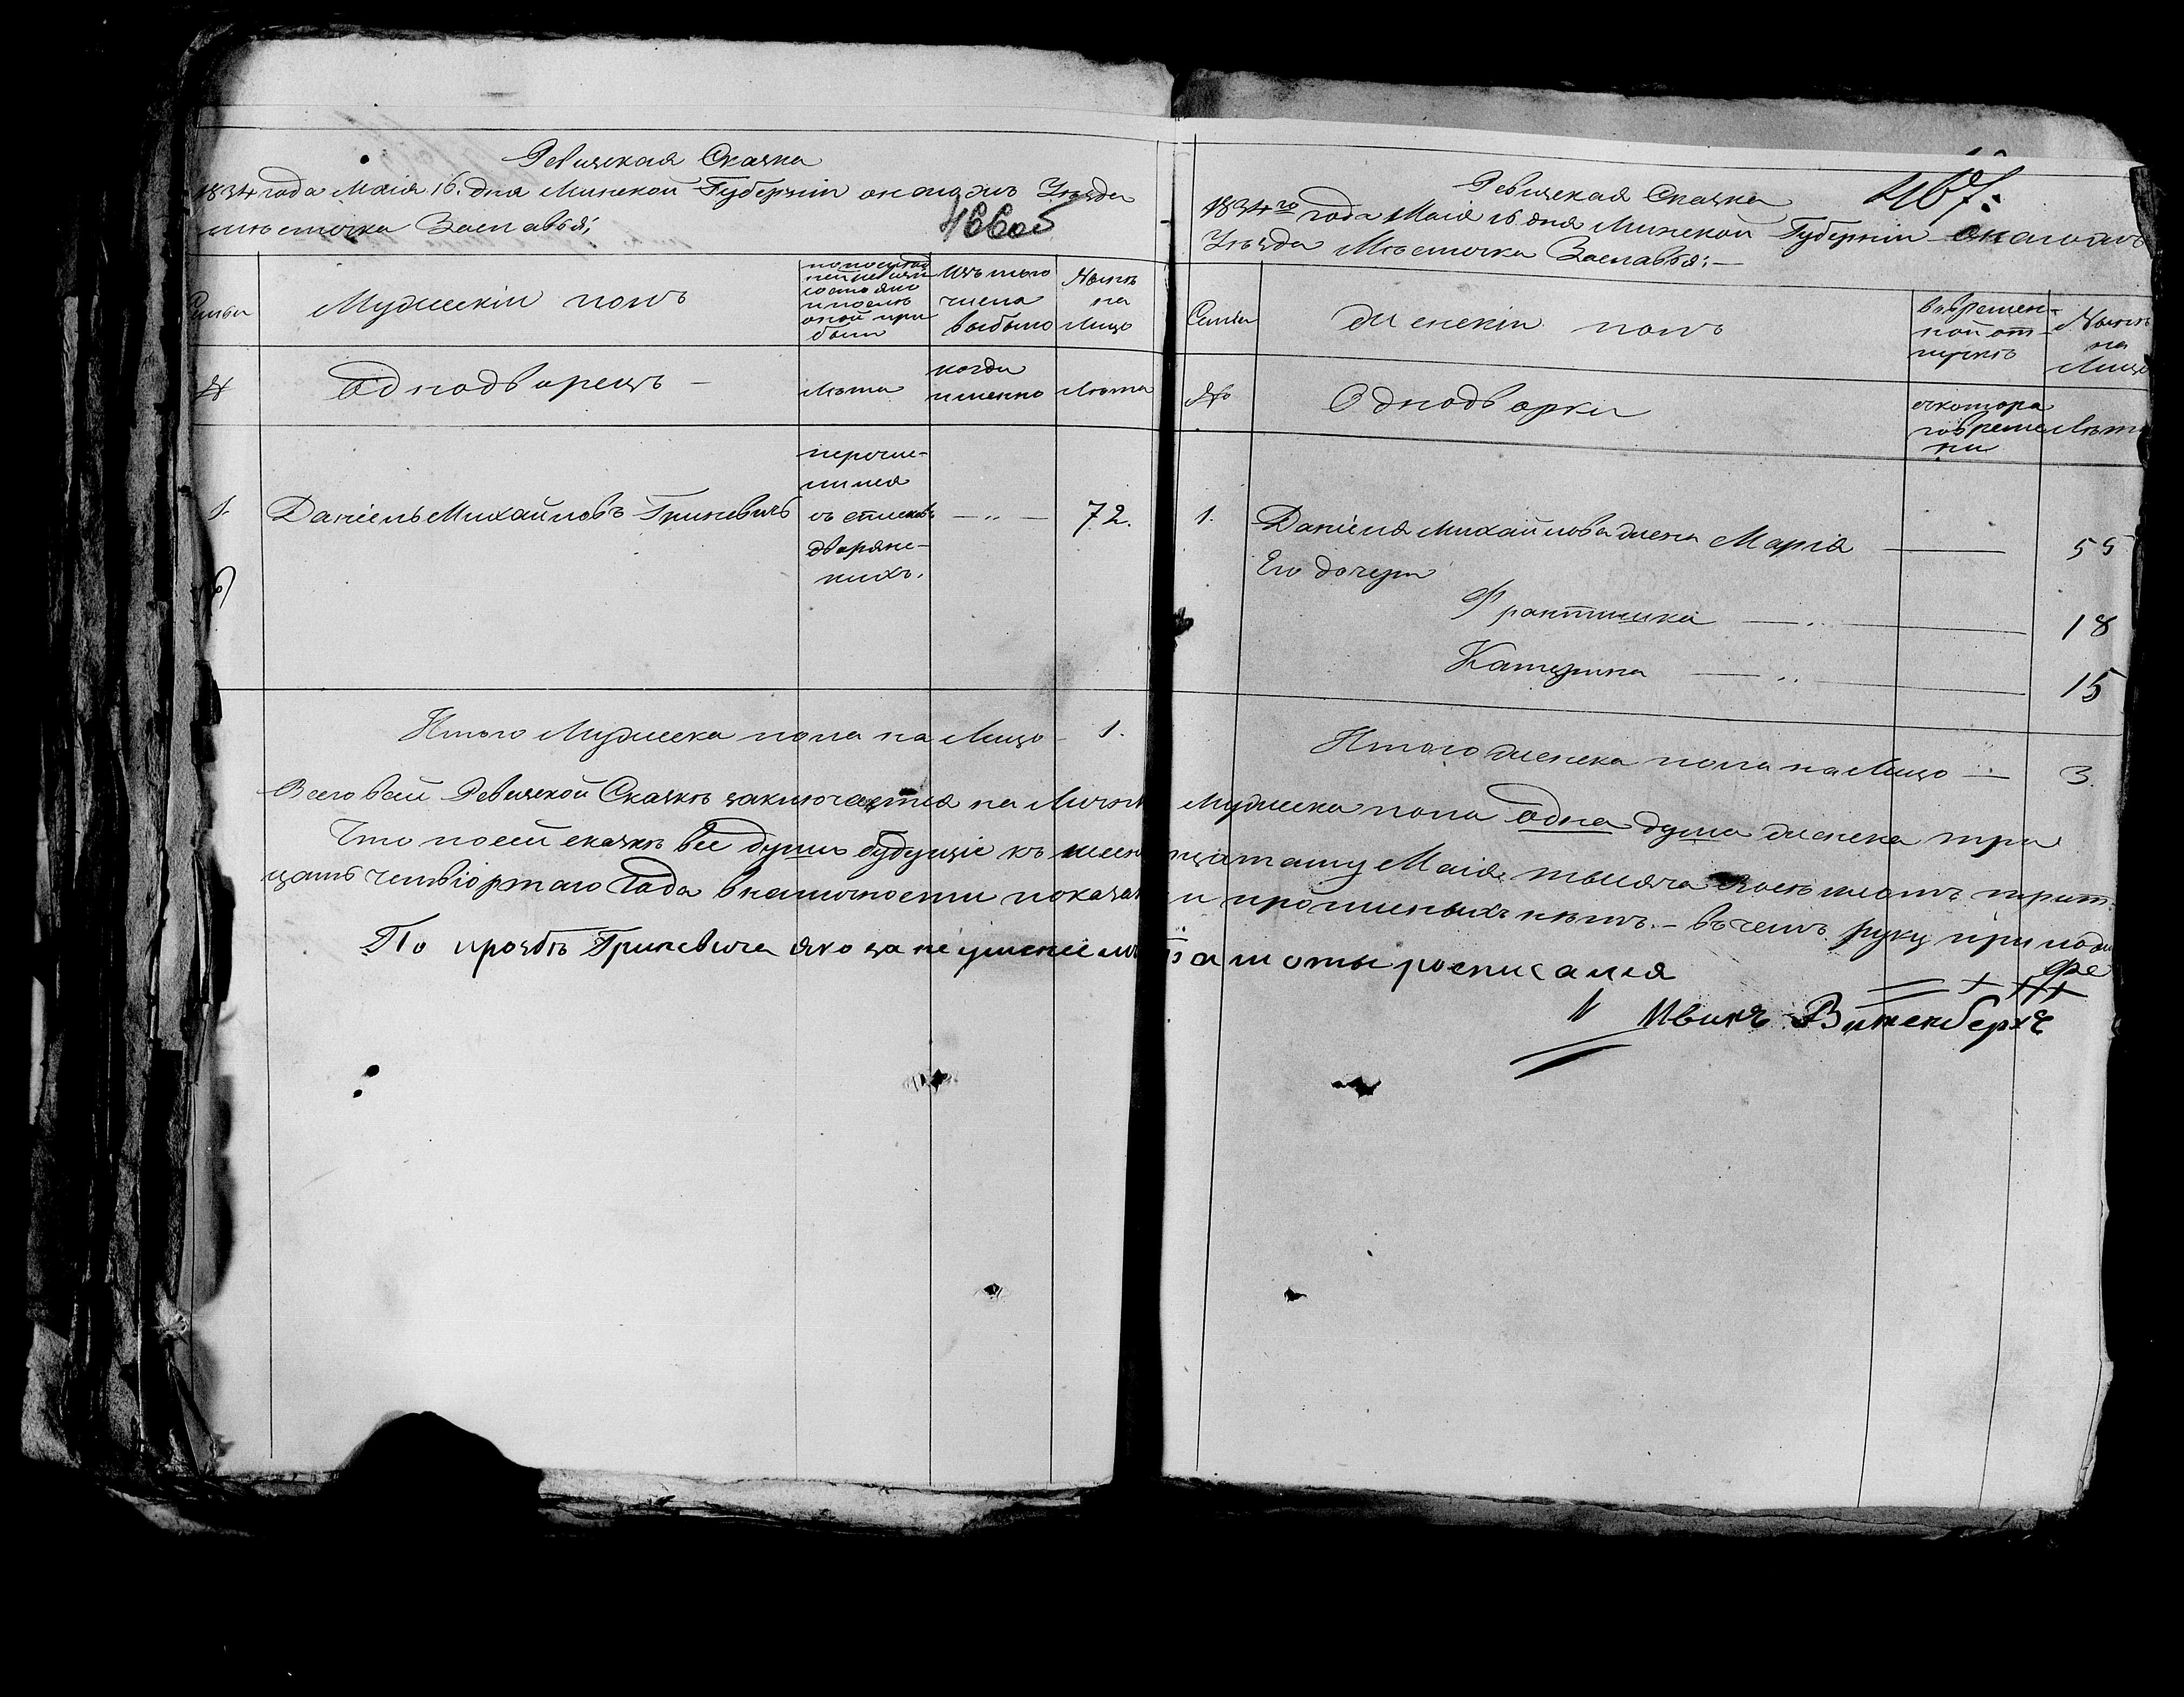 Ревизская Сказка
1834 года Маія 16. дня Минской Губерніи онагожъ Уѣзда
мѣстечка Заславья;
466 об
Семьи
Мужескій полъ
по послѣд
ней ревизіи
состояло
и послѣ
оной при
было
Изъ того
числа
выбыло
Нынѣ
на
Лицо
№
Однодворецъ —
Лѣта
когда
именно
Лѣта
1.
Даніель Михайловъ Гриневичъ
перечис-
лился
съ списковъ
дворянс-
кихъ.
— „ —
72.
Итого Мужеска пола на Лицо — 1.
Ревизская Сказка
467.
1834го года Маія 16 дня Минской Губерніи онагожъ
Уѣзда Мѣстечка Заславья; —
Семьи
Женскій полъ
во времен-
ной от-
лучкѣ
Нынѣ
на
Лицо
№
Однодворки
съ котора
го време
ни
Лѣта
1.
Даніеля Михайлова жена Марія — 55
Его дочери
Франтишка — 18
Катерина — „ — 15
Итого женска пола на Лицо — 3.
Всего в сей Ревизской Сказкѣ заключается на Личн Мужеска пола одна душа женска три
Что по сей сказкѣ всѣ души будущіе къ шест цатому Маія тысяча восемьсотъ трит-
цать четвіортаго Года в наличности показан и прописныхъ нѣтъ. — въ чемъ руку прилож
По прозбѣ Гриневича яко за неуменіемъ грамоты росписался
+ ++
Ивикъ Витенберхъ